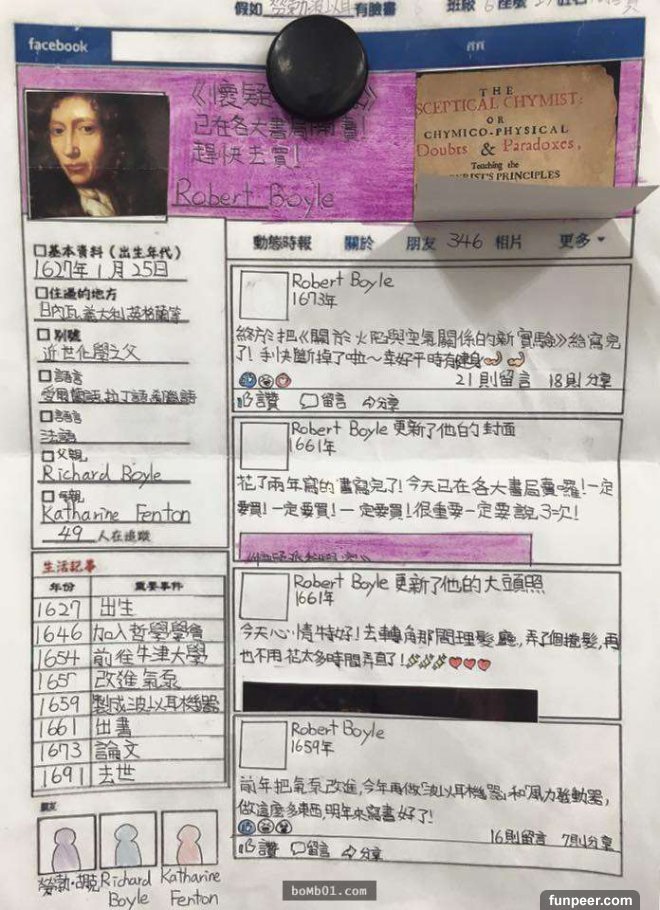 假如 勞勃波以耳 有臉書
班級 6 座號
facebook
首頁
《懷疑
已在各大書局開賣!
趕快去買!
Robert Boyle
THE
SCEPTICAL CHYMIST:
OR
CHYMICO-PHYSICAL
Doubts & Paradoxes,
Touching the
PRINCIPLES
動態時報 關於 朋友 346 相片 更多
基本資料(出生年代)
1627年1月25日
住過的地方
日內瓦,義大利,英格蘭等
別號
近世化學之父
語言
愛爾蘭語,拉丁語,希臘語
語言
法語
父親
Richard Boyle
母親
Katharine Fenton
49 人在追蹤
生活記事
年份 重要事件
1627 出生
1646 加入哲學學會
1654 前往牛津大學
1657 改進氣泵
1659 製成波以耳機器
1661 出書
1673 論文
1691 去世
朋友
勞勃·胡克
Richard Boyle
Katharine Fenton
Robert Boyle
1673年
終於把《關於火陷與空氣關係的新實驗》給寫完
了!手快斷掉了啦~幸好平時有健身
21則留言 18則分享
讚 留言 分享
Robert Boyle 更新了他的封面
1661年
花了兩年寫的書寫完了!今天已在各大書局賣囉!一定
要買!一定要買!一定要買!很重要一定要說3次!
Robert Boyle 更新了他的大頭照
1661年
今天心情特好!去轉角那間理髮廳,弄了個捲髮,再
也不用花太多時間弄直了!
Robert Boyle
1659年
前年把氣泵改進,今年再做「波以耳機器」和「風力發動器」,
做這麼多東西,明年來寫書好了!
16則留言 7則分享
讚 留言 分享
boMb01.com
funpeer.com